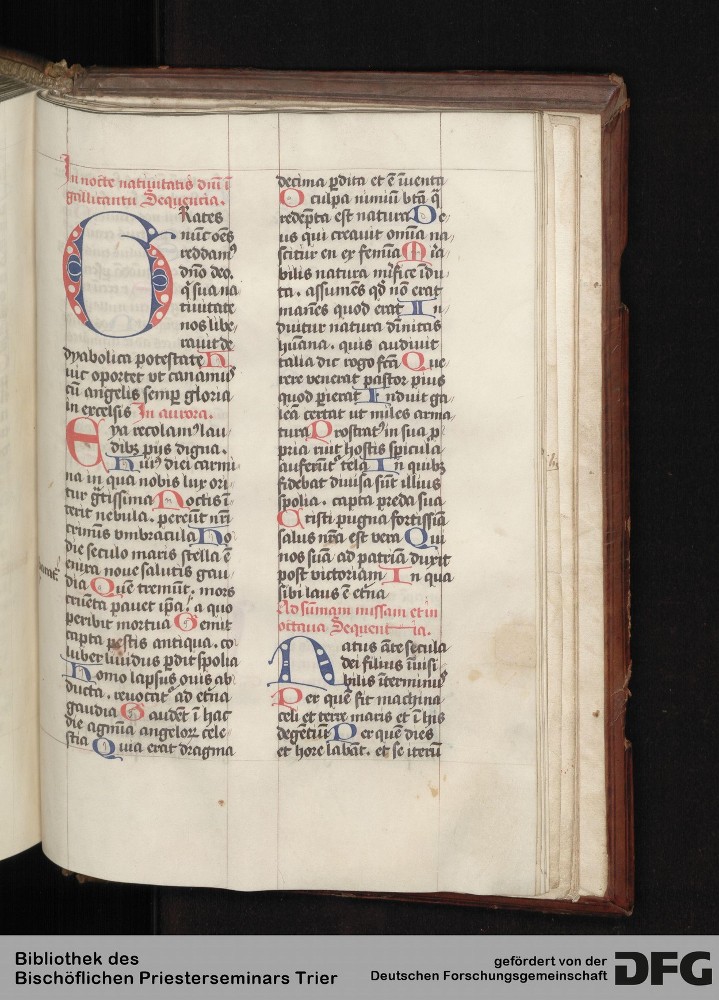 In nocte natiuitatis dnī ī
gallicantu Sequencia.
GRates
nūc oēs
reddam᷒
dn̄o deo.
q̄ sua na
tiuitate
nos libe
rauit de
dyabolica potestate H
uic oportet vt canamus᷒
cū angelis semp gloria
in excelsis In aurora.
Eya recolam᷒ lau
dibꝫ pijs digna.
Hui᷒ diei carmi
na in qua nobis lux ori
tur gͣtissima Noctis ī
terit nebula. pereūt nr̄i
criminis vmbracula Ho
die seculo maris stella ē
enixa noue salutis gau
dia Quē tremūt. mors
cruēta pauet ip̄a. a quo
peribit mortua Gemit
capta pestis antiqua. co
luber liuidus pdit spolia
Homo lapsus ouis ab
ducta. reuocat᷒ ad et̄na
gaudia Gaudēt ī hac
die agmīa angeloꝝ cele
stia Quia erat dragma
decima pdita et ē īuenta
O culpa nimiū btā q̄
redēpta est natura De
us qui creauit om̄ia na
scitur en ex femīa Mīa
bilis natura mifice īdu
ta. assumēs qd̄ nō erat
manēs quod erat In
duitur natura dīnitas
hūana. quis audiuit
talia dic rogo fcā Que
rere venerat pastor pius
quod pierat Induit ga
leā certat ut miles arma
tura Prostrat᷒ in sua p
pria ruit hostis spicula
auferūt᷒ tela In quibꝫ
fidebat diuisa sūt illius
spolia. capta preda sua
Cristi pugna fortissīa
salus nr̄a est vera Qui
nos suā ad patriā duxit
post victoriam In qua
sibi laus ē et̄na
Ad sūmam missam et in
octaua Sequentia.
Natus āte secula
dei filius īuisi
bilis īterminus᷒
Per quē fit machina
celi et terre maris et ī his
degentiū Per quē dies
et hore labāt. et se iterū
Bibliothek des
Bischöflichen Priesterseminars Trier
gefördert von der
Deutschen Forschungsgemeinschaft
DFG